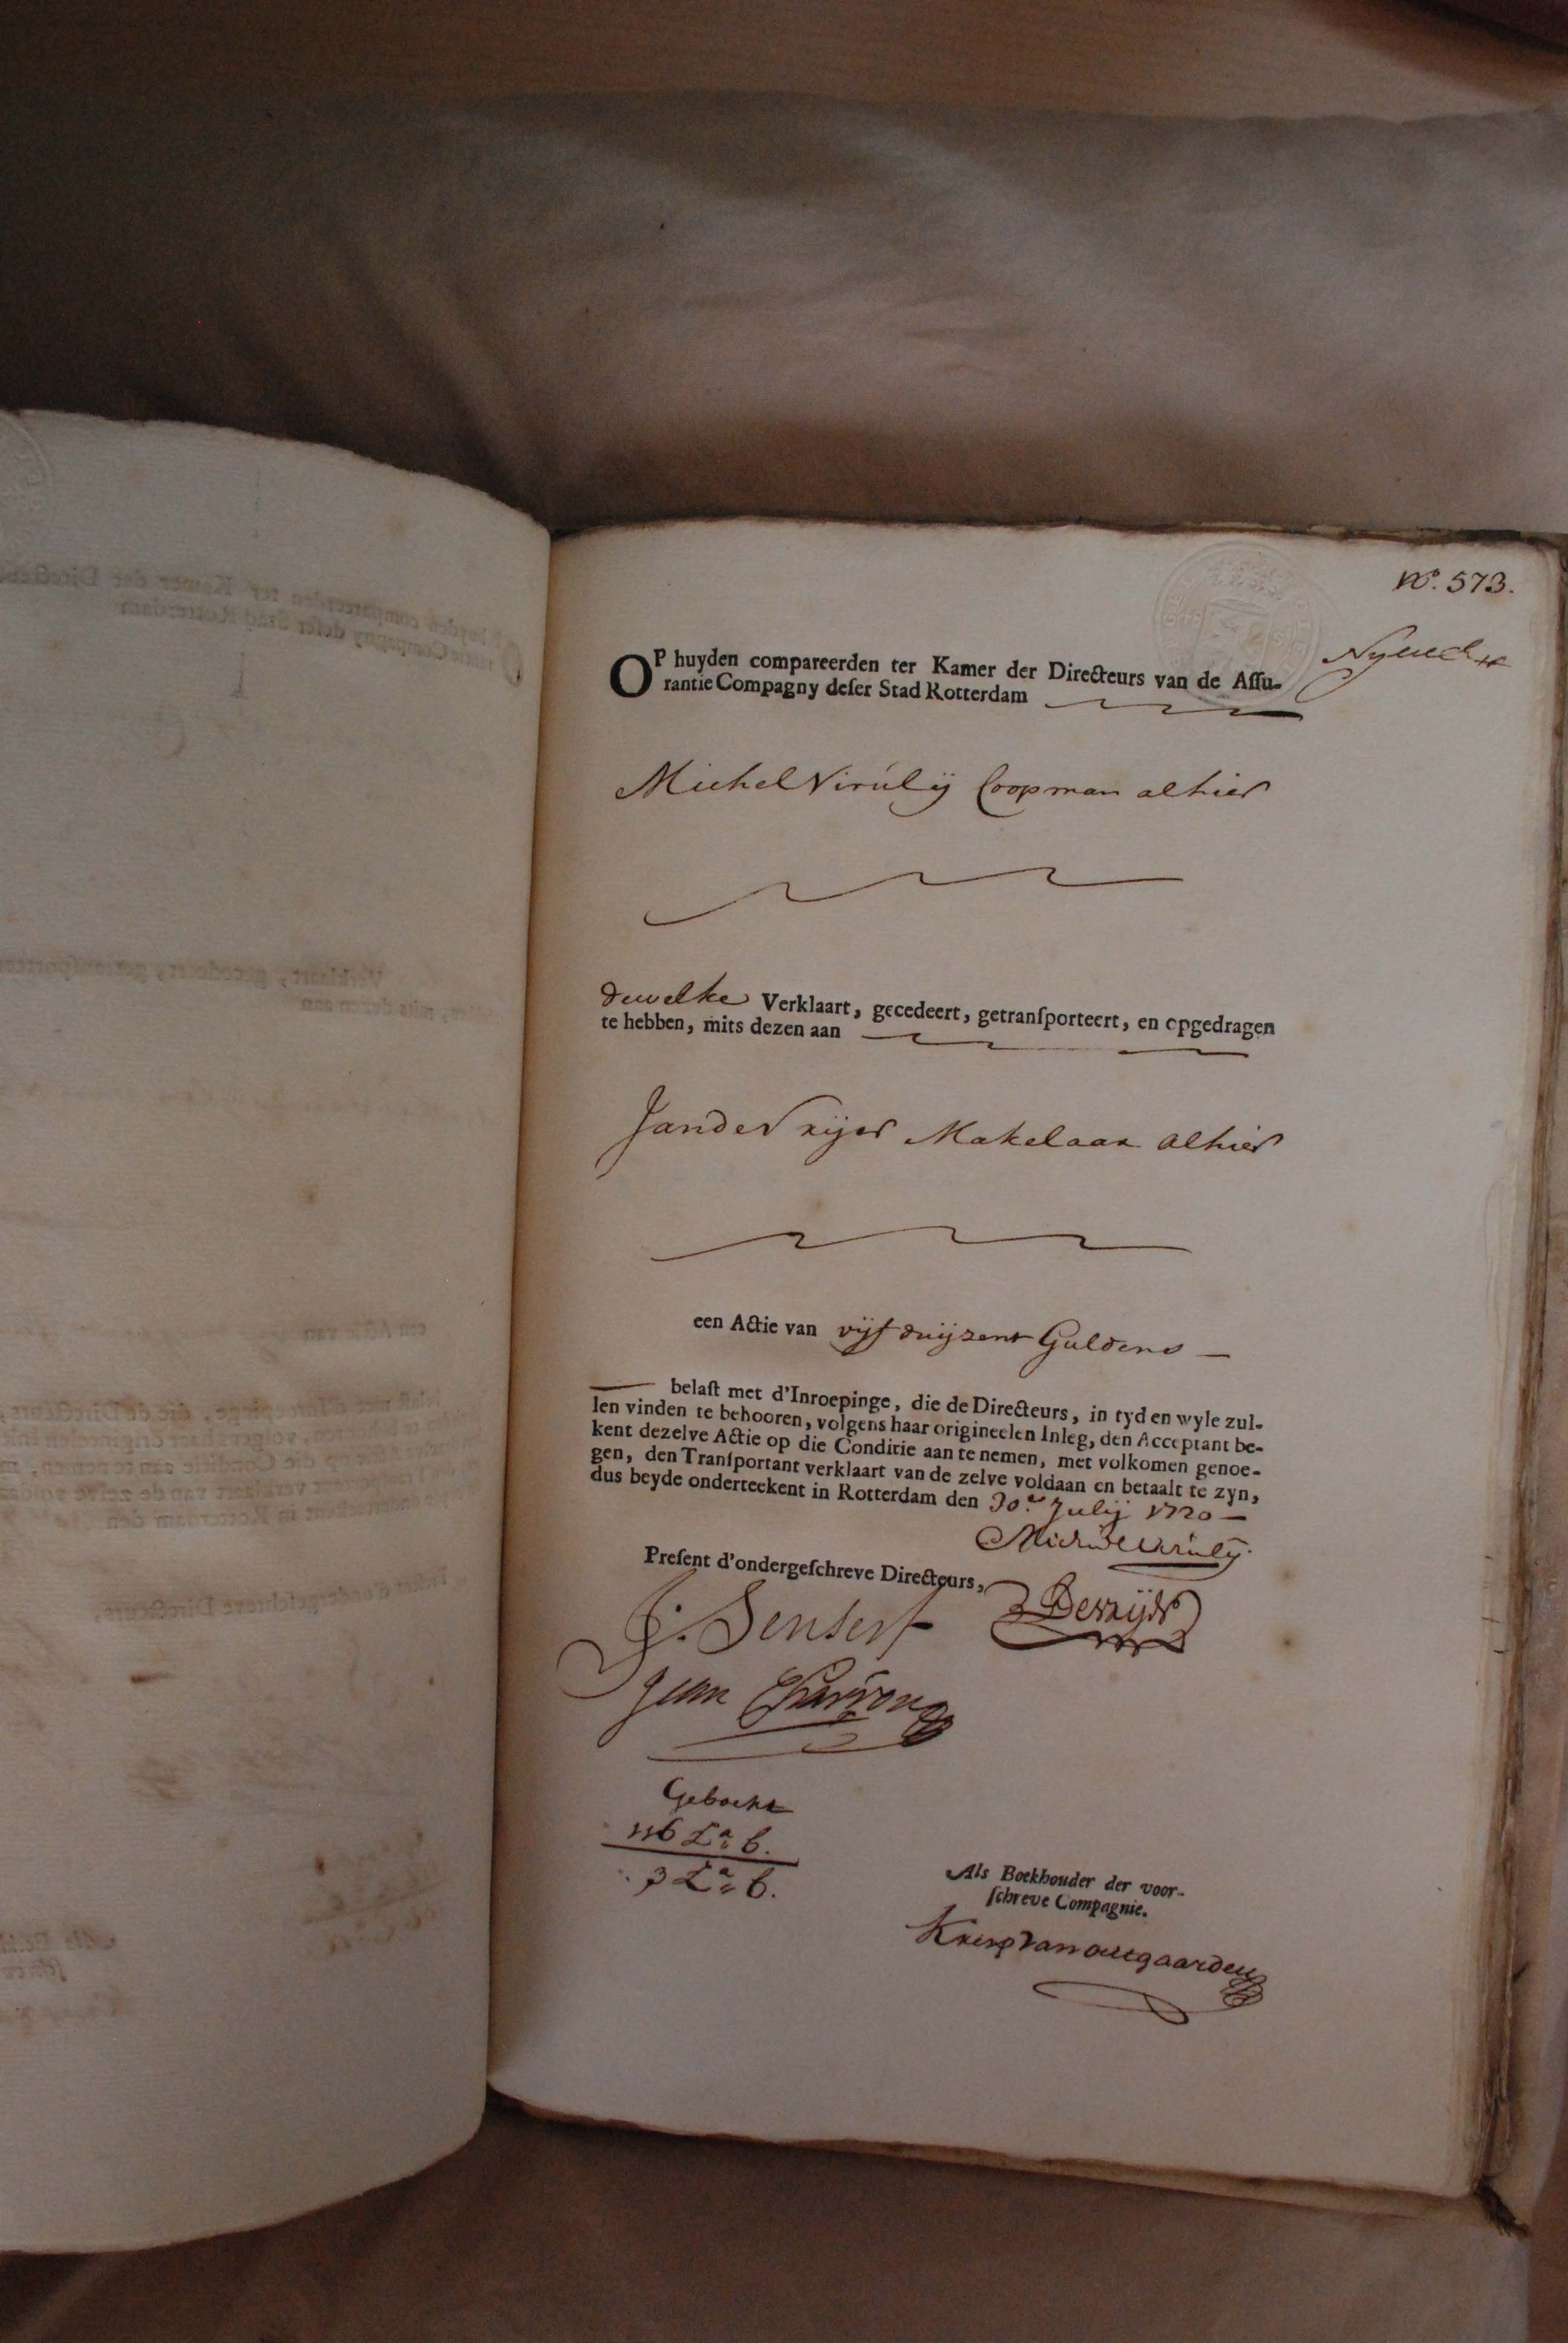 No. 573.
OP huyden compareerden ter Kamer der Directeurs van de Aſſu-
rantie Compagny deſer Stad Rotterdam
Michel Virúlÿ Coopman alhier
dewelke Verklaart, gecedeert, getranſporteert, en opgedragen
te hebben, mits dezen aan
Jan de Vrijer Makelaar alhier
een Actie van vijf duijzent Guldens
belaſt met d'Inroepinge, die de Directeurs, in tyd en wyle zul-
len vinden te behooren, volgens haar origineelen Inleg, den Acceptant be-
kent dezelve Actie op die Conditie aan te nemen, met volkomen genoe-
gen, den Tranſportant verklaart van de zelve voldaan en betaalt te zyn,
dus beyde onderteekent in Rotterdam den 30.en Julij 1720
Michiel Virulÿ
Preſent d'ondergeſchreve Directeurs,
J: Senserf
Jean Charron
Geboekt
116 La: b.
3 La: b.
Als Boekhouder der voor-
ſchreve Compagnie.
van outgaarden